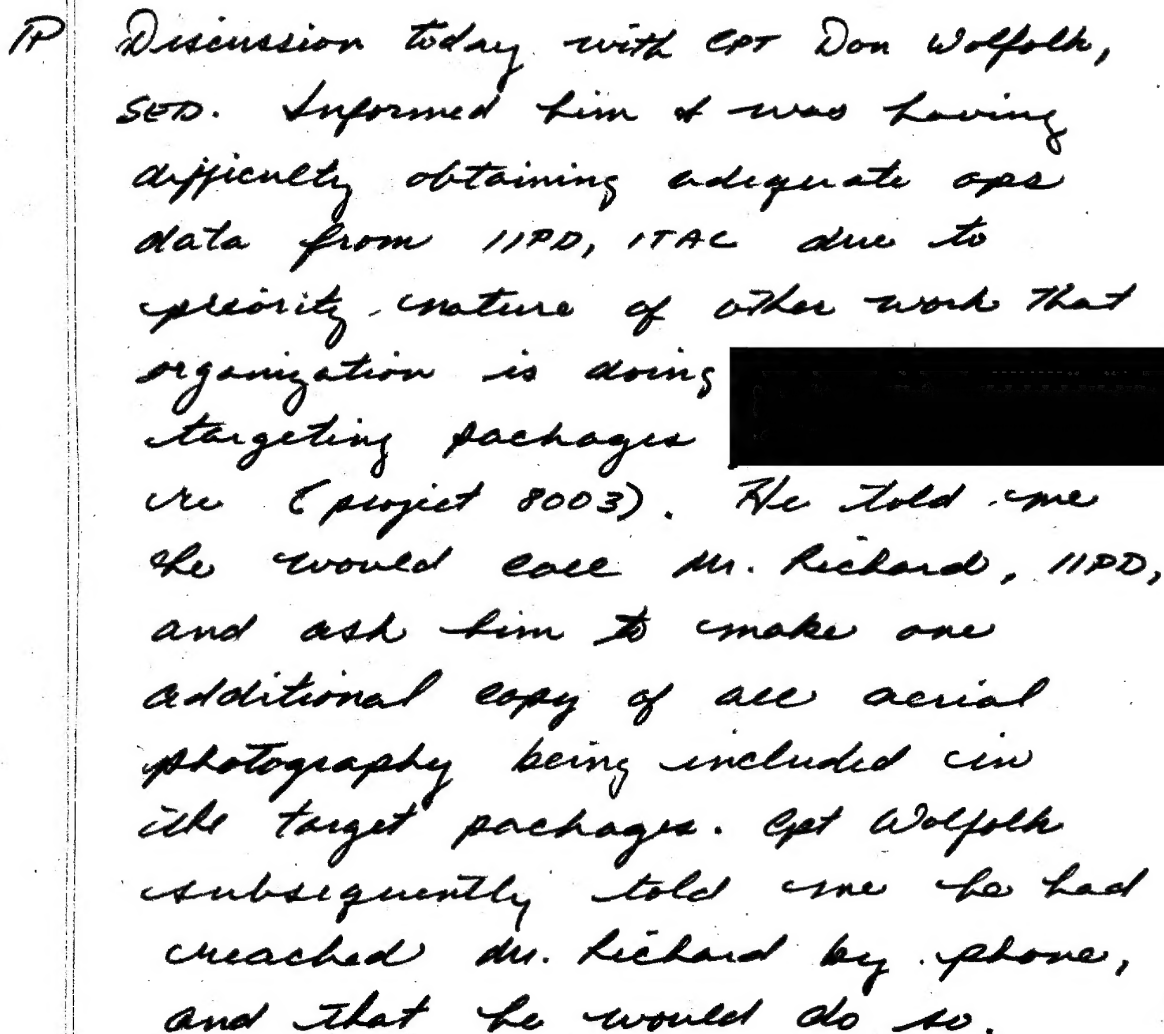 TP Discussion today with CPT Don Wolfolk,
SED. Informed him I was having
difficulty obtaining adequate ops
data from IIPD, ITAC due to
priority nature of other work that
organization is doing
targeting packages
re (project 8003). He told me
he would call Mr. Richard, IIPD,
and ask him to make one
additional copy of all aerial
photography being included in
the target packages. Cpt Wolfolk
subsequently told me he had
reached Mr. Richard by phone,
and that he would do so.